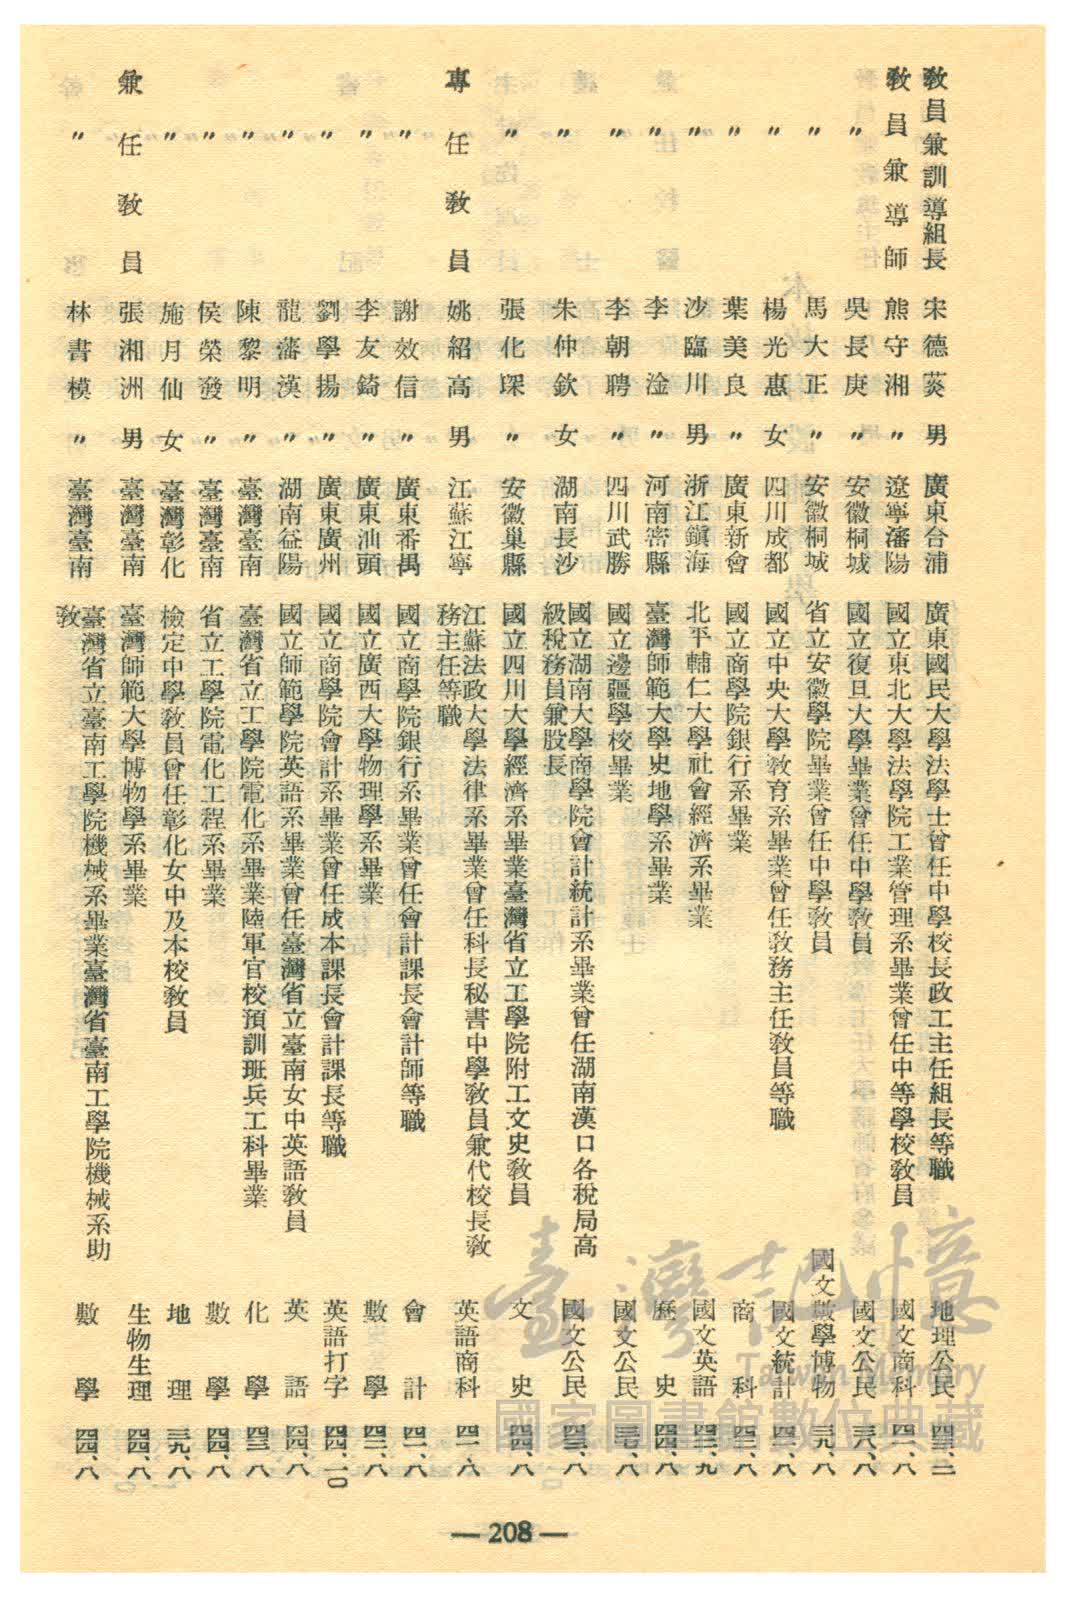 教員兼訓導組長 宋德葵 男 廣東台浦 廣東國民大學法學士曾任中學校長政工主任組長等職 地理公民
教員兼導師 熊守湘 〃 遼寧瀋陽 國立東北大學法學院工業管理系畢業曾任中等學校教員 國文商科 四一、八
〃 吳長庚 〃 安徽桐城 國立復旦大學畢業曾任中學教員 國文公民 三八、八
〃 馬大正 〃 安徽桐城 省立安徽學院畢業曾任中學教員 國文數學博物 三九、八
〃 楊光惠 女 四川成都 國立中央大學教育系畢業曾任教務主任教員等職 國文統計 四四、八
〃 葉美良 〃 廣東新會 國立商學院銀行系畢業 商科 四三、八
〃 沙臨川 男 浙江鎮海 北平輔仁大學社會經濟系畢業 國文英語
〃 李淦 〃 河南密縣 臺灣師範大學史地學系畢業 歷史 四四、八
〃 李朝聘 〃 四川武勝 國立邊疆學校畢業 國文公民
〃 朱仲欽 女 湖南長沙 國立湖南大學商學院會計統計系畢業曾任湖南漢口各稅局高
級稅務員兼股長 國文公民
〃 張化琛 〃 安徽巢縣 國立四川大學經濟系畢業臺灣省立工學院附工文史教員 文史 四四、八
專任教員 姚紹高 男 江蘇江寧 江蘇法政大學法律系畢業曾任科長秘書中學教員兼代校長教
務主任等職 英語商科 四一、八
〃 謝效信 〃 廣東番禺 國立商學院銀行系畢業曾任會計課長會計師等職 會計 四二、八
〃 李友錡 〃 廣東汕頭 國立廣西大學物理學系畢業 數學 四三、八
〃 劉學揚 〃 廣東廣州 國立商學院會計系畢業曾任成本課長會計課長等職 英語打字 四四、一〇
〃 龍藩漢 〃 湖南益陽 國立師範學院英語系畢業曾任臺灣省立臺南女中英語教員 英語 四四、八
〃 陳黎明 〃 臺灣臺南 臺灣省立工學院電化系畢業陸軍官校預訓班兵工科畢業 化學 四三、八
〃 侯榮發 〃 臺灣臺南 省立工學院電化工程系畢業 數學 四四、八
〃 施月仙 女 臺灣彰化 檢定中學教員會任彰化女中及本校教員 地理 三九、八
兼任教員 張湘洲 男 臺灣臺南 臺灣師範大學博物學系畢業 生物生理 四四、八
〃 林書模 〃 臺灣臺南 臺灣省立臺南工學院機械系畢業臺灣省臺南工學院機械系助
教 數學 四四、八
— 208 —
臺灣記憶
Taiwan Memory
國家圖書館數位典藏